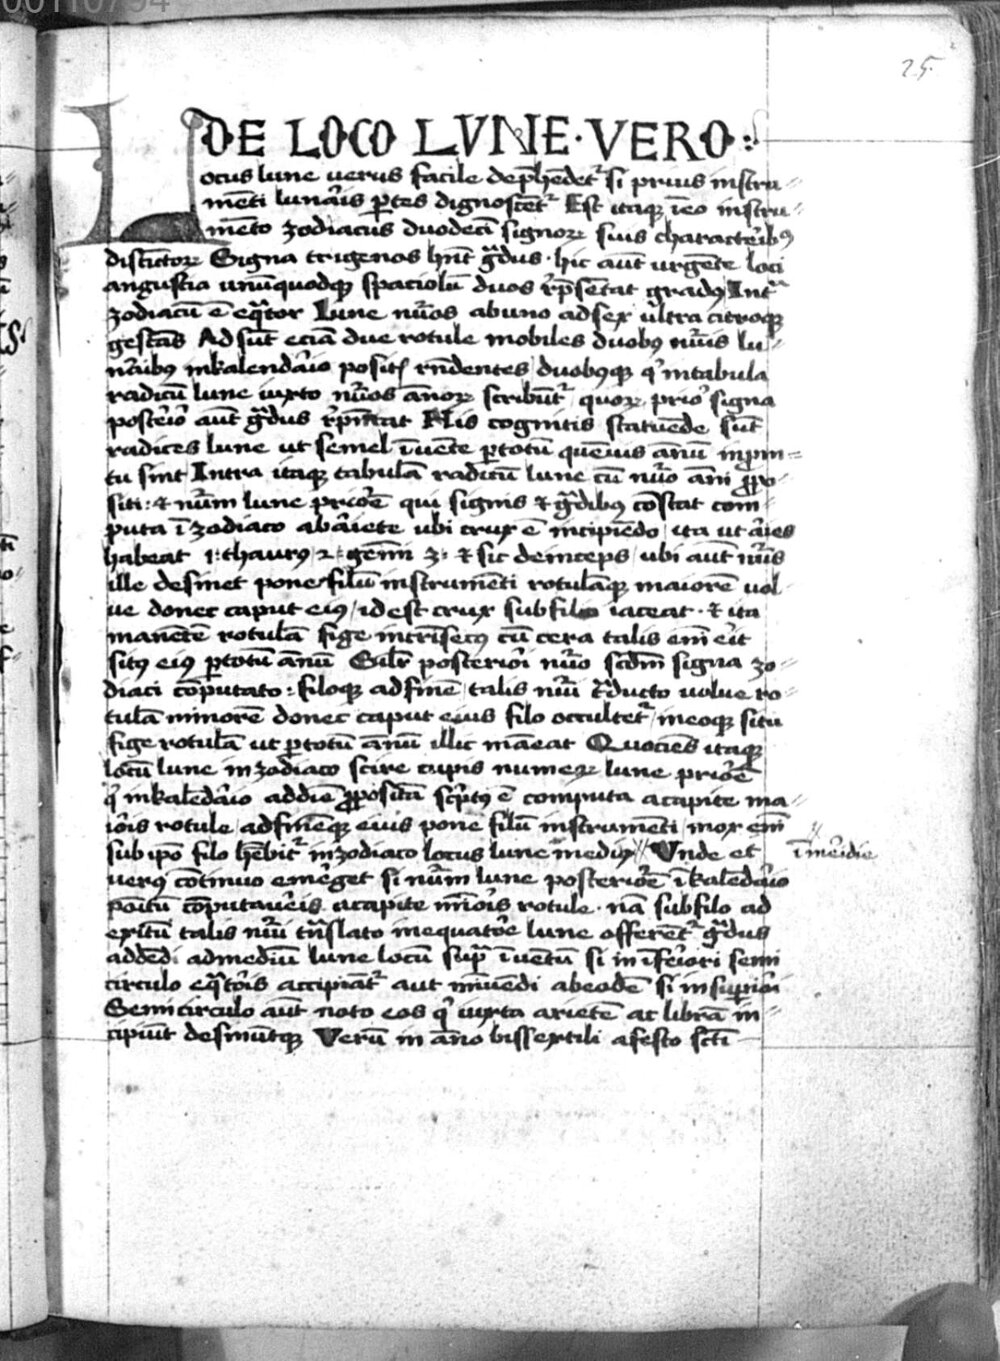 00110794
25
DE LOCO LVNE · VERO :
Locus lune uerus facile dep̄hēdet᷑ si prius instru⸗
mēti lunāis ꝑtes dignoscēt᷑ Est itaqꝫ ī eo instru⸗
mēto zodiacus duodecī signoꝝ suis characteribꝰ
distīctoꝝ Signa trigenos hn̄t gͣdus · hic aūt urgēte loci
angustia unūquodqꝫ spaciolū duos rp̄sētat gradꝰ Int᷑
zodiacū ē eqͣtor lune nūos ab uno ad sex ultra citroqꝫ
gestās Ad sūt eciā due rotule mobiles duobꝰ nūis lu⸗
nāibus in kalendāio posit rn̄dentes duobꝰqꝫ qͥ in tabula
radicū lune iuxto nūos annoꝝ scribūt᷑ quoꝝ prioʳ signa
posteioʳ aūt gͣdus rp̄ntat His cognitis statuēde sūt
radices lune ut semel īuēte ꝑ totū quēuis annū in prim⸗
tu sint Intra itaqꝫ tabulā radicū lune cū nūo anni ꝓpo⸗
siti : & nūm lune priorē qui signis & gͣdibꝰ cōstat com⸗
puta ī zodiaco ab ariete ubi crux ē incipiēdo ita ut aries
habeat 1 · thaurꝰ 2 · gemī 3 · & sic deinceps ubi aūt nūs
ille desinet pone filū instrumēti rotulāqꝫ maiorē uol
ue donec caput eiꝰ id est crux sub filo iaceat · & ita
manētē rotulā fige intrīsecꝰ cū cera talis eni eīt
sitꝰ eiꝰ ꝑ totū annū Silr̄ posteriori nūo scdm̄ signa zo⸗
diaci cōputato : filoqꝫ ad finē talis nūi tͣducto uolue ro⸗
tulā minorē donec caput eius filo occultet᷑ in eoqꝫ situ
fige rotulā ut ꝑ totū annū illic māeat Quociēs itaqꝫ
locū lune in zodiaco scire cupis numeꝝ lune priorē
qͥ in kalēdāio ad diē ꝓpositā scͥptꝰ ē computa a capite ma⸗
ioris rotule ad finēqꝫ eius pone filū instrumēti mox eni
sub ipō filo hēbit᷑ in zodiaco locus lune mediꝰ // Vnde et
ī meīdie
uerꝰ cōtinuo emēget si nūm lune posteriorē ī kalēdāio
poitū cōputaueis a capite mīois rotule · nā sub filo ad
exitū talis nūi tn̄slato in equatore lune offerēt᷑ gͣdus
addēdi ad mediū lune locū supͣ īuētū si in īferiori semi
circulo eqͣtoīs accipiāt᷑ aut minuēdi ab eodē si in supiori
Semicirculo aūt noto eos qͥ iuxta arietē ac librā in⸗
cipiūt desinūtqꝫ Verū in anno bissextili a festo scti